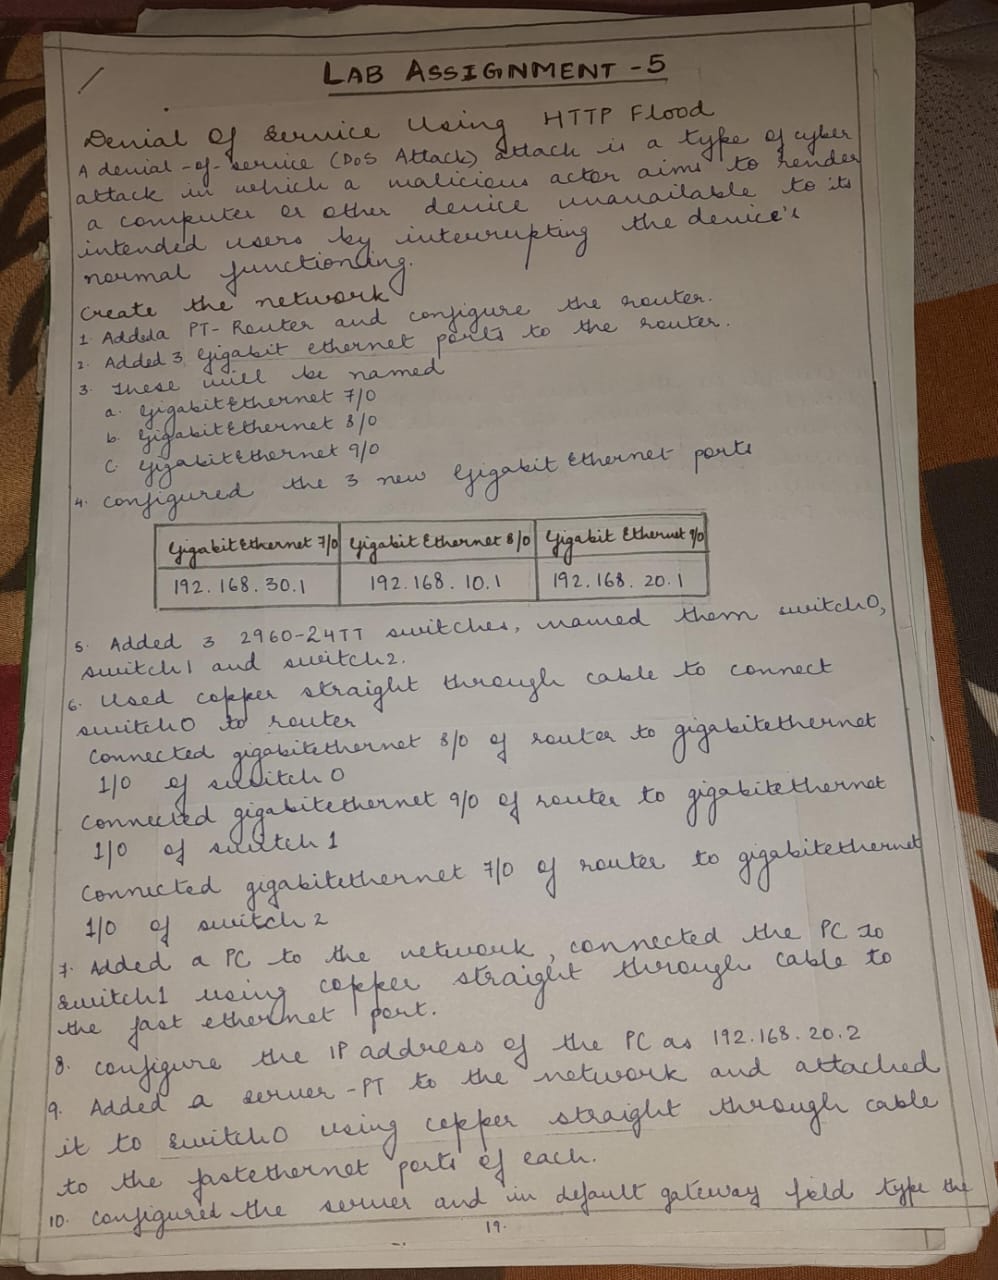 LAB ASSIGNMENT - 5
Denial Of Service Using HTTP Flood
A denial-of-service (DoS Attack) attack is a type of cyber
attack in which a malicious actor aims to render
a computer or other device unavailable to its
intended users by interrupting the device's
normal functioning.
Create the network
1. Added a PT-Router and configure the router.
2. Added 3 Gigabit ethernet ports to the router.
3. These will be named
a. GigabitEthernet 7/0
b. GigabitEthernet 8/0
c. GigabitEthernet 9/0
4. Configured the 3 new Gigabit Ethernet ports
GigabitEthernet 7/0 Gigabit Ethernet 8/0 Gigabit Ethernet 9/0
192.168.30.1 192.168.10.1 192.168.20.1
5. Added 3 2960-24TT switches, named them switch0,
switch1 and switch2.
6. Used copper straight through cable to connect
switch0 to router
Connected gigabitethernet 8/0 of router to gigabitethernet
1/0 of switch 0
Connected gigabitethernet 9/0 of router to gigabitethernet
1/0 of switch 1
Connected gigabitethernet 7/0 of router to gigabitethernet
1/0 of switch 2
7. Added a PC to the network, connected the PC to
Switch1 using copper straight through cable to
the fast ethernet port.
8. Configure the IP address of the PC as 192.168.20.2
9. Added a server-PT to the network and attached
it to Switch0 using copper straight through cable
to the fastethernet ports of each.
10. Configured the server and in default gateway field type the
19.